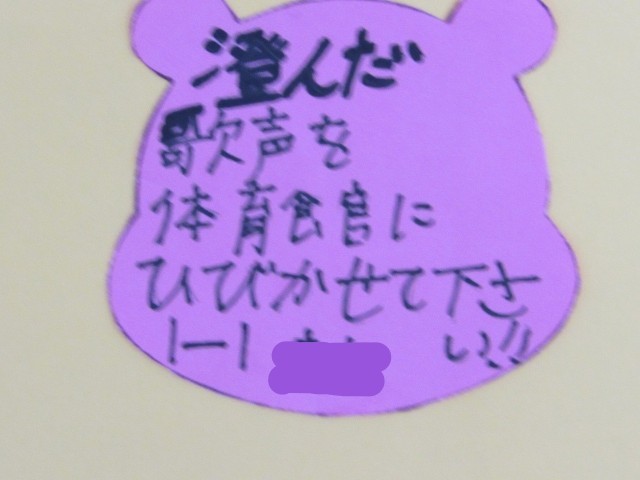 澄んだ
歌声を
体育館に
ひびかせて下さ
い!!
1-1